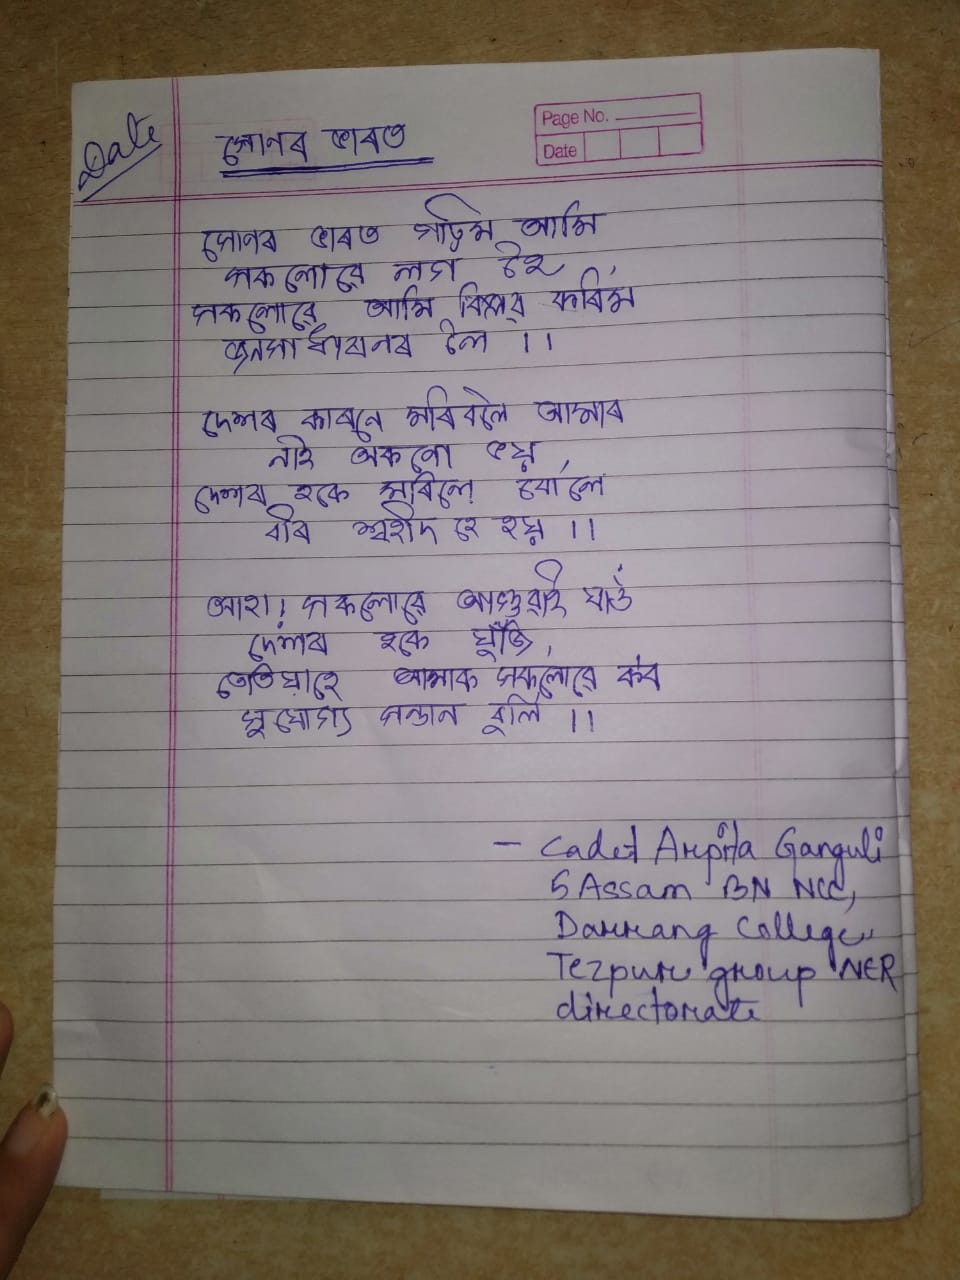 Date
সোণৰ ভাৰত
Page No.
Date
সোণৰ ভাৰত গঢ়িম আমি
সকলোৱে লগ হৈ,
সকলোৱে আমি বিপ্লৱ কৰিম
জনসাধাৰনৰ হৈল ।।
দেশৰ কাৰনে মৰিবলৈ আমাৰ
নাই অকনো ভয়,
দেশৰ হকে মৰিলে বোলে
বীৰ শ্বহীদ হে হয় ।।
আহা! সকলোৱে আগুৱাই যাওঁ
দেশৰ হকে যুঁজি,
তেতিয়াহে আমাক সকলোৱে ক'ব
সুযোগ্য সন্তান বুলি ।।
- Cadet Arpita Ganguli
5 Assam BN NCC,
Darrang College,
Tezpur group NER
directorate